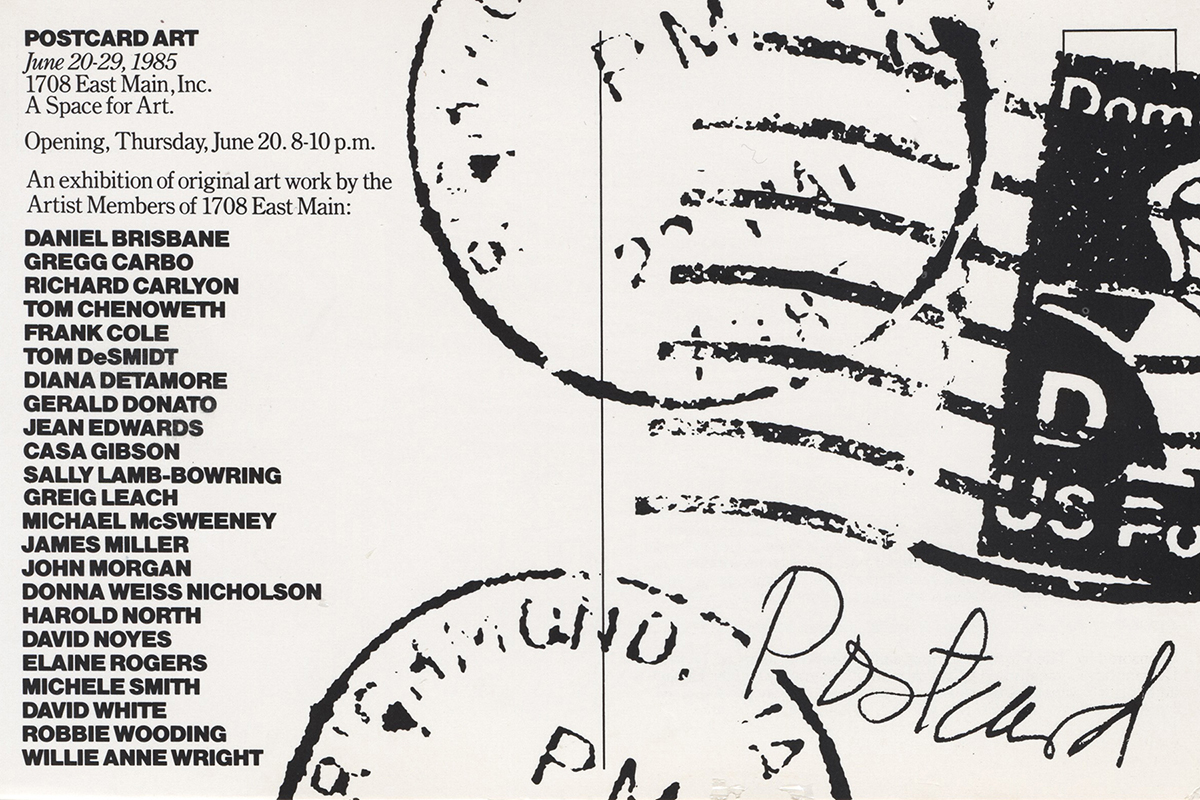 POSTCARD ART
June 20-29, 1985
1708 East Main, Inc.
A Space for Art.
Opening, Thursday, June 20. 8-10 p.m.
An exhibition of original art work by the
Artist Members of 1708 East Main:
DANIEL BRISBANE
GREGG CARBO
RICHARD CARLYON
TOM CHENOWETH
FRANK COLE
TOM DeSMIDT
DIANA DETAMORE
GERALD DONATO
JEAN EDWARDS
CASA GIBSON
SALLY LAMB-BOWRING
GREIG LEACH
MICHAEL McSWEENEY
JAMES MILLER
JOHN MORGAN
DONNA WEISS NICHOLSON
HAROLD NORTH
DAVID NOYES
ELAINE ROGERS
MICHELE SMITH
DAVID WHITE
ROBBIE WOODING
WILLIE ANNE WRIGHT
PM
Dom
D
US Po
Postcard
PM